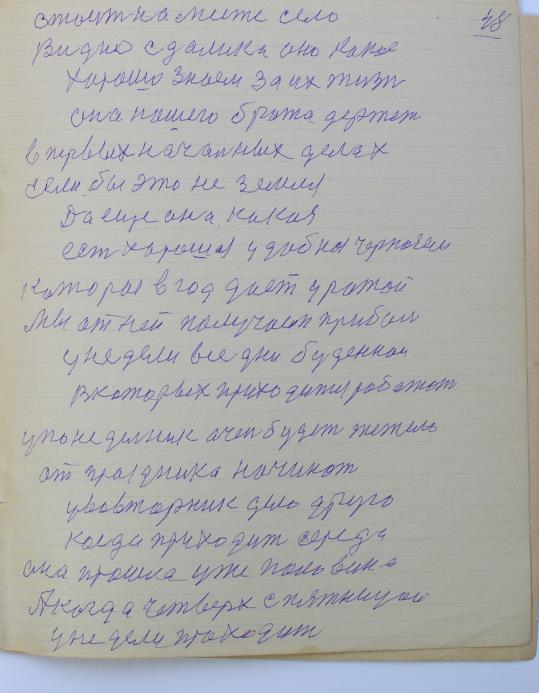 48
стоит на меже село
Видно сдалика оно какое
хорошо знаем за их жизн
она нашего брата держет
в первых началных делах
если бы это не земля
Да еще она какая
ест хорошая удобная чернозем
Которая в год дает уражай
Мы от ней получаем прибыл
у недели все дни буденнои
в которых приходится работат
у понеделник очен будет тежело
от праздника начинат
увовторник дело друго
когда приходит середа
она прошла уже половина
А когда четверх с пятницои
у недели проходит